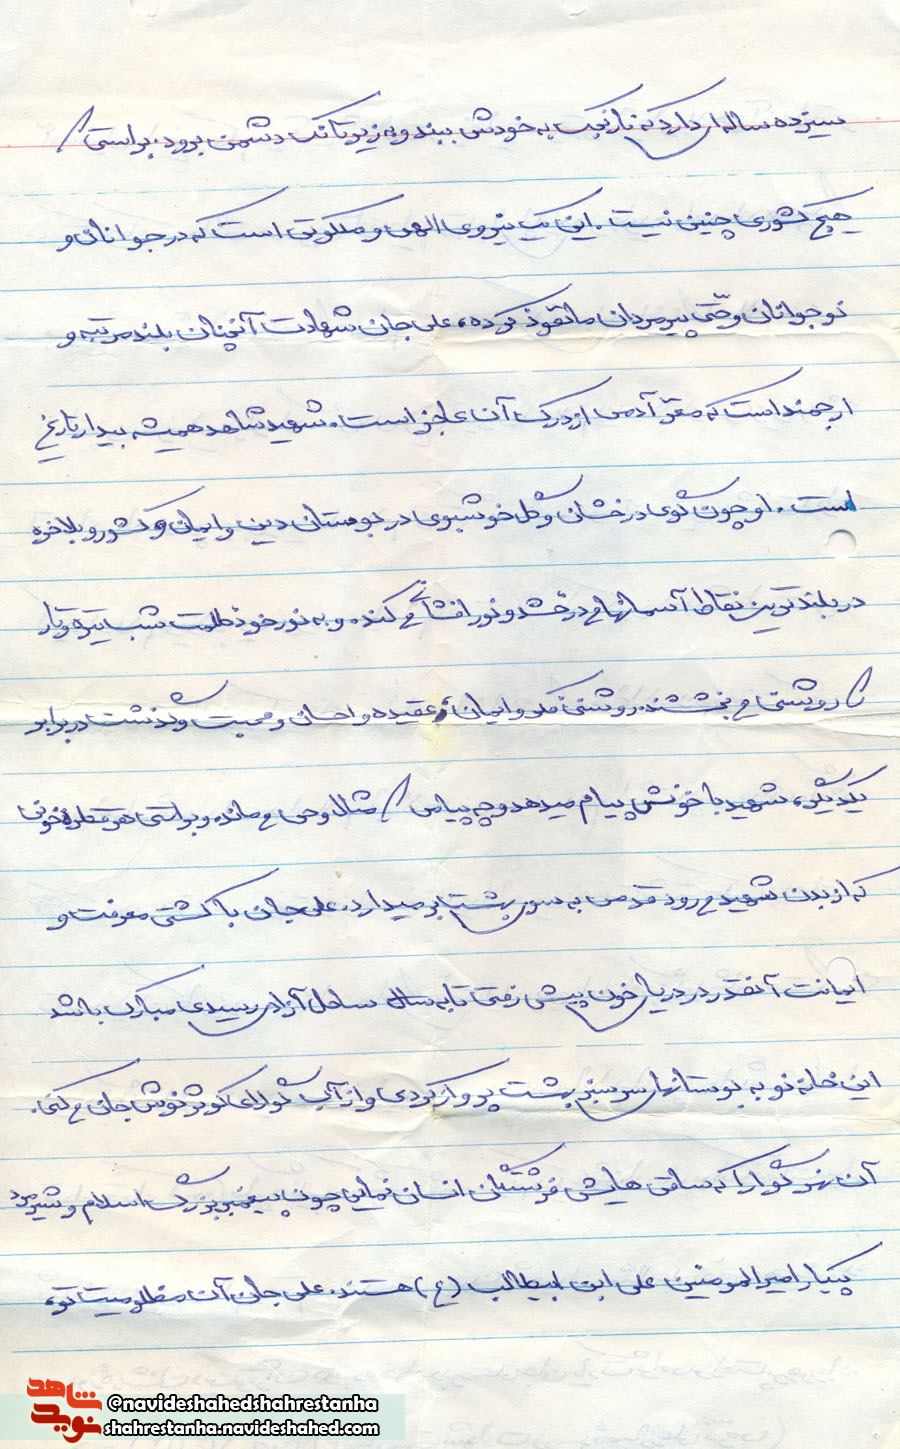 سیزده ساله ای دارد که نارنجک به خودش ببندد و به زیر تانک دشمن برود. براستی
هیچ کشوری چنین نیست. این یک نیروی الهی و ملکوتی است که در جوانان و
نوجوانان و حتّی پیرمردان ما نفوذ کرده، علی جان شهادت آنچنان بلند مرتبه و
ارجمند است که مغز آدمی از درک آن عاجز است. شهید شاهد همیشه بیدار تاریخ
است. او چون گوی درخشان و گل خوشبوی در بوستان دین و ایمان و کشور و بلاخره
در بلندترین نقاط آسمانها می درخشد و نور افشانی می کند. و به نور خود ظلمت شب تیره و تار
روشنی می بخشند. روشنی فکر و ایمان، عقیده و احسان و محبت و گذشت در برابر
یکدیگر، شهید با خونش پیام میدهد و چه پیامی مثال وحی می ماند، و براستی هر قطره خونی
که از بدن شهید می رود قدمی به سوی بهشت بر میدارد. علی جان با کشتی معرفت و
ایمانت آنقدر در دریای خون پیش رفتی تا به ساحل آزادی رسیدی مبارک باشد
این خانه نو به بوستانهای سرسبز بهشت پرواز کردی و از آب گوارای کوثر نوش جان می کنی.
آن نهر گوارا که ساقی هایش فرشتگان انسان نمایی چون پیغمبر بزرگ اسلام و شیرمرد
پیکار امیرالمومنین علی ابن ابیطالب (ع) هستند. علی جان آن مظلومیت تو،
شاهد
نوید
@navideshahedshahrestanha
shahrestanha.navideshahed.com